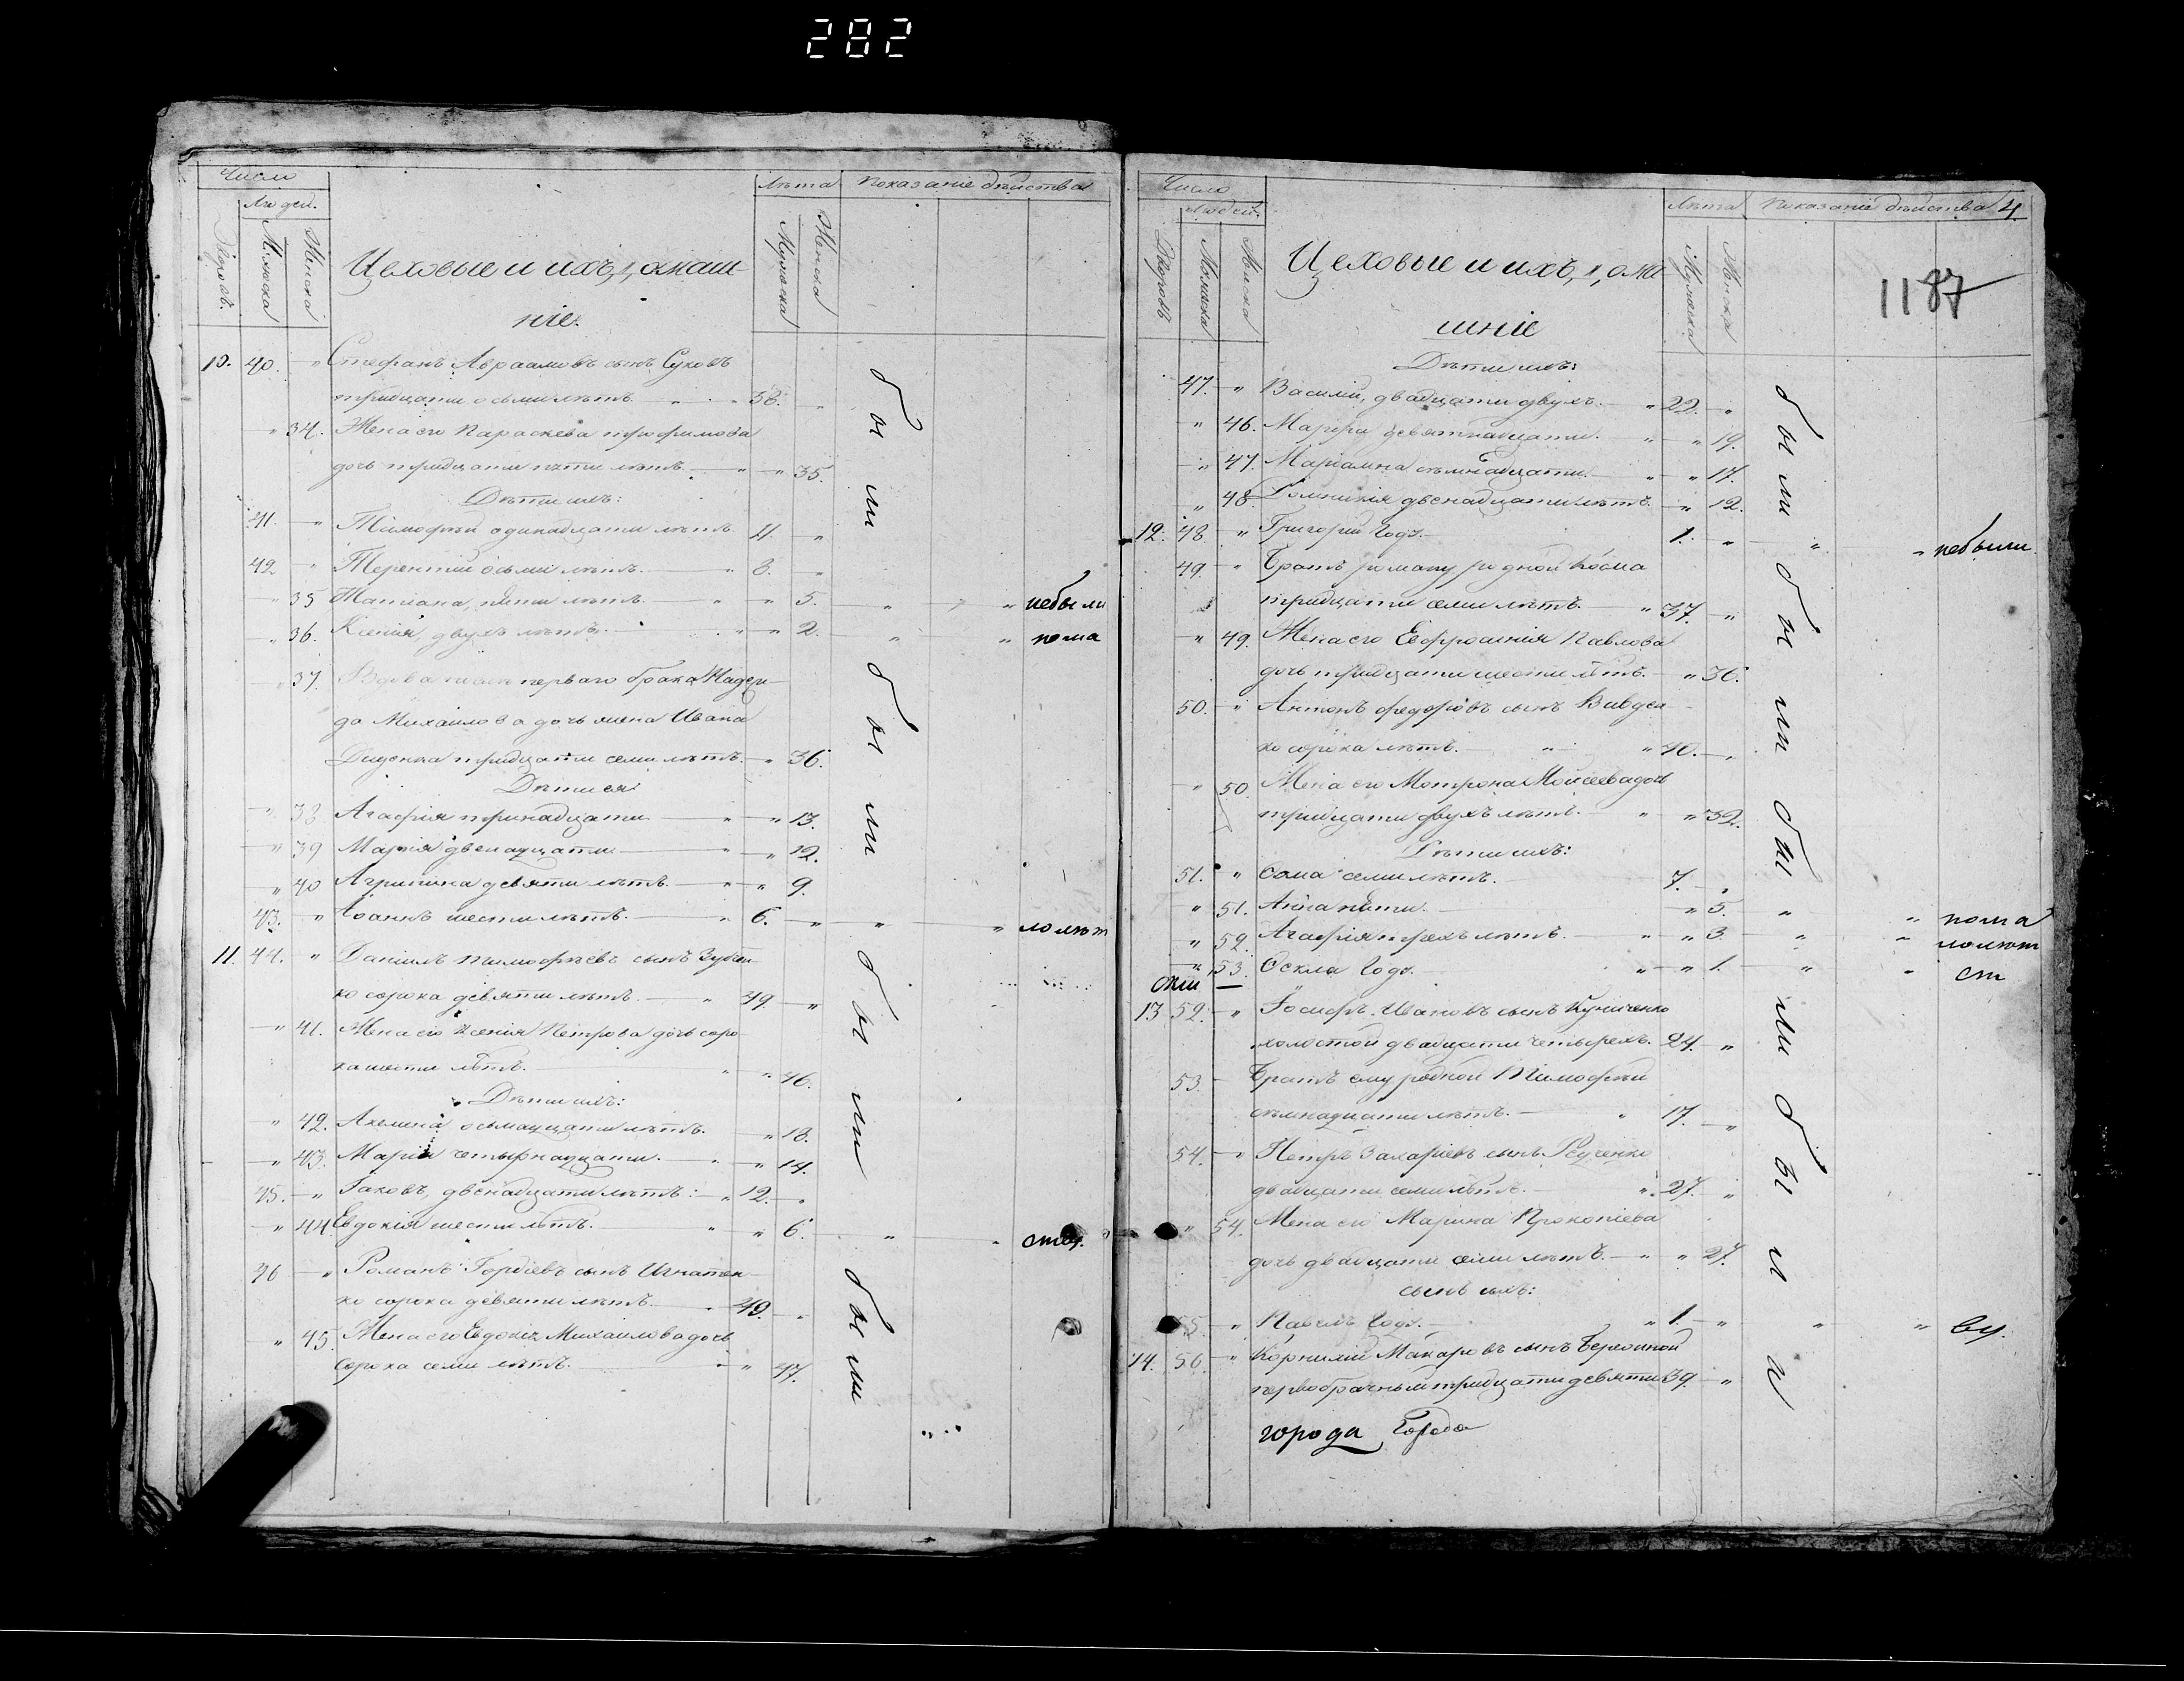 282
Число
Людей.
Дворовъ.
Мужеска
Женска
Цеховые и ихъ домаш-
ніе.
Лѣта
Мужеска
Женска
Показаніе дѣйства
10. 40. " Стефанъ Авраамовъ сынъ Суховъ
тридцати осьми лѣтъ. 38. "
" 34. Жена его Параскева Трофимова
дочь тридцати пяти лѣтъ. " 35.
Дѣти ихъ:
41. " Тимофей одинадцати лѣтъ 11. "
42 " Терентий осьми лѣтъ. " 8. "
" 35 Татіана, пяти лѣтъ. " " 5. " " небыли
" 36. Ксенія, двухъ лѣтъ. " " 2. " " пома
" 37. Вдова перваго брака Надеж-
да Михаилова дочь жена Ивана
тридцати семи лѣтъ. " 36.
Дѣти ея:
" 38 Агафія тринадцати " " 13.
" 39 Марія двенадцати " " 12.
" 40 Агрипина девяти лѣтъ. " " 9.
43. " Іоаннъ шести лѣтъ. " 6. " " " лолѣт
11. 44. " Даніилъ Тимофѣевъ сынъ
ко сорока девяти лѣтъ. " 49 "
" 41. Жена его Ксенія Петрова дочь соро-
ка шести лѣтъ. " " 46.
Дѣти ихъ:
" 42. Акелина осьмнадцати лѣтъ. " 18.
" 43. Марія четырнадцати. " " 14.
45. " Іаковъ, двенадцати лѣтъ: " 12. "
" 44. Евдокія шести лѣтъ. " " 6. " "
46 " Романъ Гордіевъ сынъ Игнатен-
ко сорока девяти лѣтъ. " 49. "
" 45. Жена его Евдокія Михаилова дочь
сорока семи лѣтъ. " " 47.
были
были
были
были
Число
Людей.
Дворовъ
Мужеска
Женска
Цеховые и ихъ дома
шніе
Лѣта
Мужеска
Женска
Показаніе дѣйства 4
1187
Дѣти ихъ:
47. " Василій, двадцати двухъ. " 22. "
" 46. Марфа девятнадцати. " " 19.
" 47. Маріамна съмнадцати. " " 17.
" 48 Домникія двенадцати лѣтъ. " 12.
12. 48. " Григорій годъ. 1. " " " небыли
49. " Братъ роману родной Косма
тридцати семи лѣтъ. " 37. "
" 49. Жена его Евфросинія Павлова
дочь тридцати шести лѣтъ. " 36.
50. " Антонъ Федоровъ сынъ Вивден-
ко сорока лѣтъ. " " 40. "
" 50 Жена его Мотрона Моисеева дочь
тридцати двухъ лѣтъ. " " 32.
Дѣти ихъ:
51. " Сава семи лѣтъ. 7. "
" 51. Анна пяти. " 5. " " пома
" 52. Агафія трехъ лѣтъ. " " 3. " " лолѣт
" 53. Фекла годъ. " " 1. " " ст
13 52. " Іосифъ Ивановъ сынъ Куниченко
холостой двадцати четырехъ. 24. "
53. Братъ ему родной Тимофей
съмнадцати лѣтъ. " 17. "
54. " Петръ Захаріевъ сынъ
двадцати семи лѣтъ. " 27. "
" 54. Жена его Марина Прокопіева
дочь двадцати семи лѣтъ. " " 27.
сынъ ихъ:
55. " Павелъ годъ. " 1. " " "
14. 56. " Корнилій Макаровъ сынъ
первобрачный тридцати девяти 39. "
города
были
были
были
были